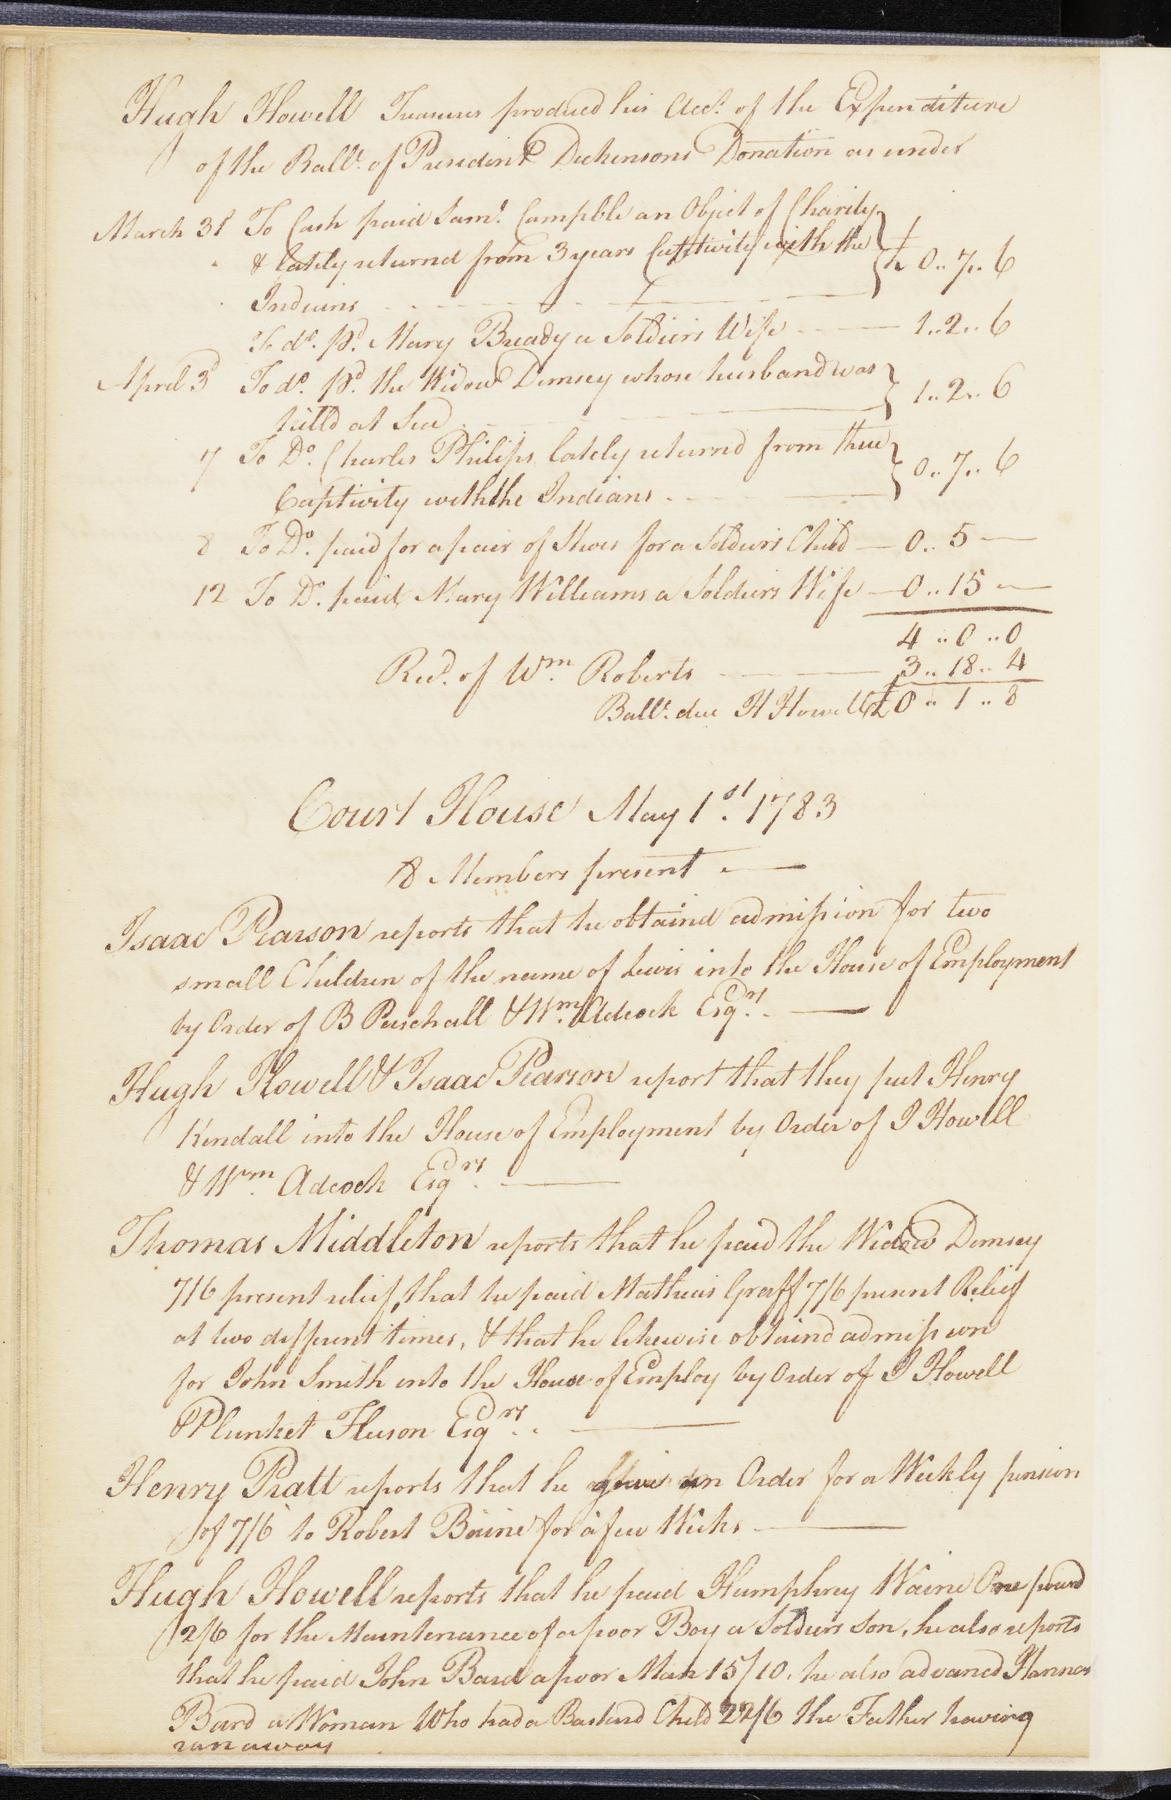 Hugh Howell Treasurer produced his Acct. of the Expenditure
of the Balle. of President Dickensons Donation as under
March 31 To Cash paid Saml. Campble an Object of Charity
& lately returnd from 3 years Captivity with the £ 0..7..6
Indians
To do. pd. Mary Bready a Soldiers Wife 1..2..6
April 3d To do. pd. the Widow Demsey whose husband was 1..2..6
killd at Sea
7 To Do. Charles Philips lately returnd from three 0..7..6
Captivity with the Indians
8 To Do. paid for a pair of Shoes for a Soldiers Child 0..5
12 To Do. paid Mary Williams a Soldiers Wife 0..15
4..0..0
Recd. of Wm. Roberts 3..18..4
Balle. due H Howell £0..1..8
Court House May 1st. 1783
8 Members present
Isaac Pearson reports that he obtaind admission for two
small Children of the name of Lewis into the House of Employment
by Order of B Paschall & Wm. Adcock Esqrs.
Hugh Howell & Isaac Pearson report that they put Henry
Kendall into the House of Employment by Order of I Howell
& Wm. Adcock Esqrs.
Thomas Middleton reports that he paid the Widow Demsey
7/6 present relief, that he paid Mathias Graff 7/6 present Relief
at two different times, & that he likewise obtaind admission
for John Smith into the House of Employ by Order of I Howell
& Plunket Fluson Esqrs.
Henry Pratt reports that he gave an Order for a Weekly pension
of 7/6 to Robert Baine for a few Weeks
Hugh Howell reports that he paid Humphrey Waine One pound
2/6 for the Maintenance of a poor Boy a Soldiers Son, he also reports
that he paid John Bard a poor Man 15/10. he also advancd Hannah
Bard a Woman Who had a Bastard Child 22/6 the Father having
run away